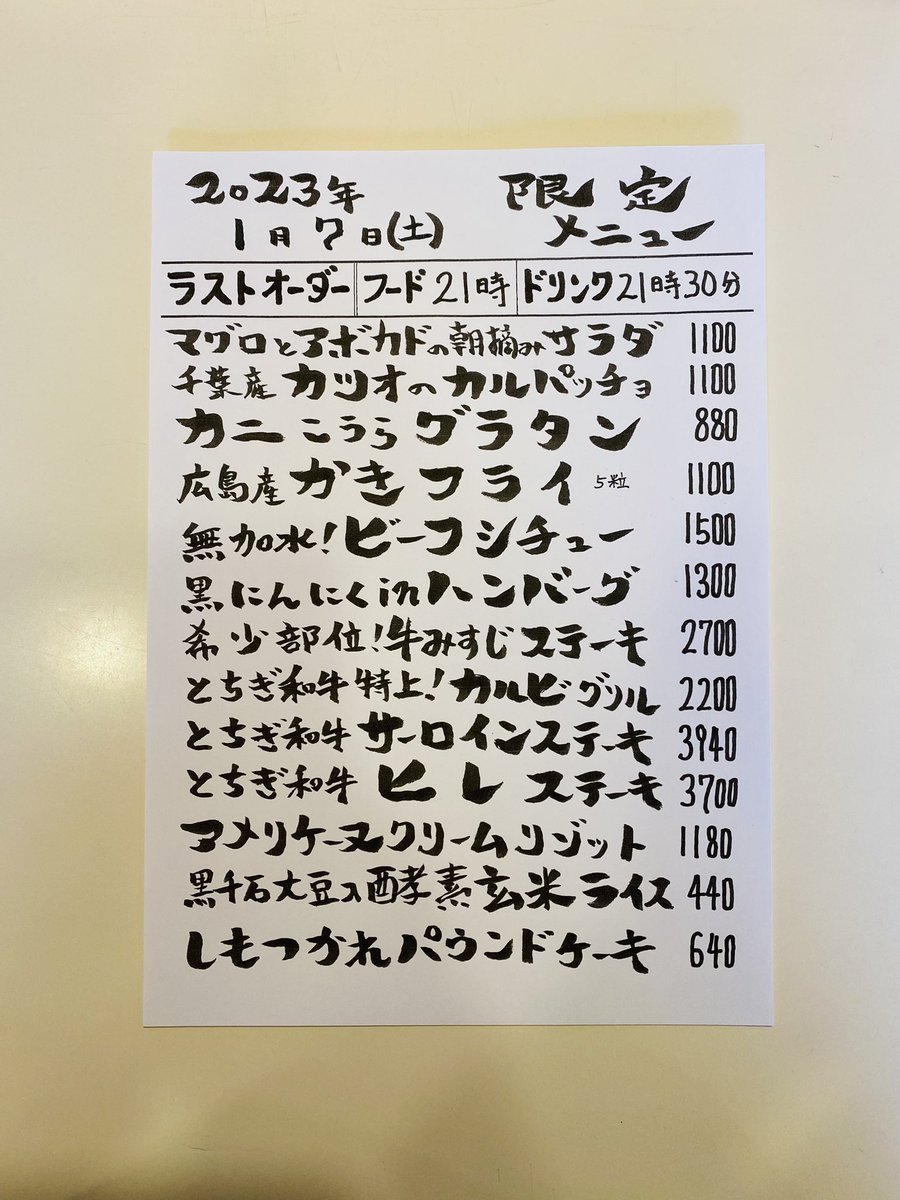 2023年 限定
1月7日(土) メニュー
ラストオーダー フード21時 ドリンク21時30分
マグロとアボカドの朝摘みサラダ 1100
千葉産 カツオのカルパッチョ 1100
カニこうらグラタン 880
広島産 かきフライ 5粒 1100
無加水!ビーフシチュー 1500
黒にんにくinハンバーグ 1300
希少部位!牛みすじステーキ 2700
とちぎ和牛特上!カルビグリル 2200
とちぎ和牛 サーロインステーキ 3940
とちぎ和牛 ヒレステーキ 3700
アメリケーヌクリームリゾット 1180
黒千石大豆入酵素玄米ライス 440
しもつかれパウンドケーキ 640